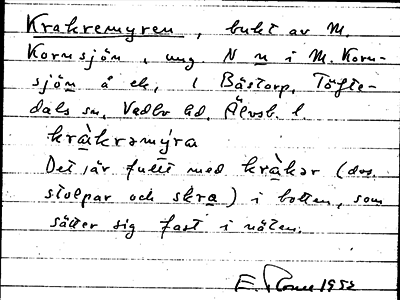 Krakremyren, bukt av M.
Kornsjön, ung. N n i M. Korn-
sjön å ek, 1 Bästorp, Töfte-
dals sn, Vedbo hd, Älvsb. l
kràkrəmýra
Det är fullt med kràkər (dvs.
stolpar och skra) i botten, som
sätter sig fast i näten.
E. 1952